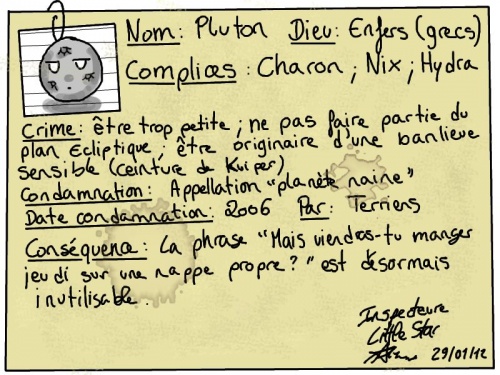 Nom: Pluton Dieu: Enfers (grecs)
Complices : Charon ; Nix ; Hydra
Crime : être trop petite ; ne pas faire partie du
plan Ecliptique ; être originaire d'une banlieue
sensible (ceinture de Kuiper)
Condamnation : Appellation "planète naine"
Date condamnation : 2006 Par : Terriens
Conséquence : La phrase "Mais viendras-tu manger
jeudi sur une nappe propre ?" est désormais
inutilisable.
Inspecteure
Little Star
29/01/12